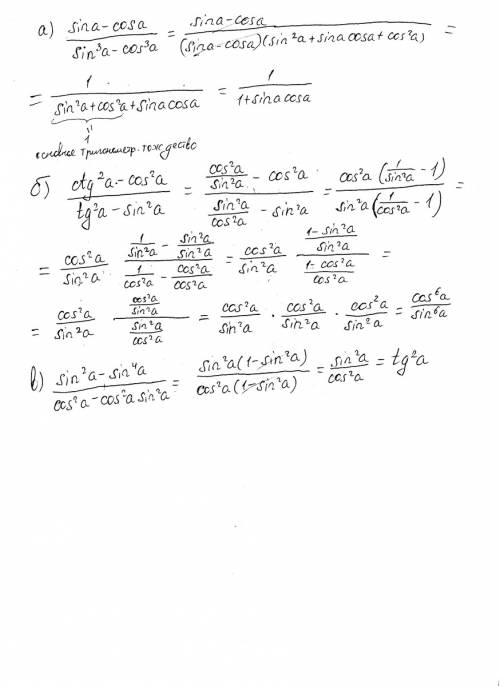 а) (sina - cosa)/(sin³a - cos³a) = (sina - cosa)/((sina - cosa)(sin²a + sina cosa + cos²a)) =
= 1/(sin²a + cos²a + sina cosa) = 1/(1 + sina cosa)
"
1
основное тригонометр. тождество
б) (ctg²a - cos²a)/(tg²a - sin²a) = (cos²a/sin²a - cos²a)/(sin²a/cos²a - sin²a) = (cos²a (1/sin²a - 1))/(sin²a (1/cos²a - 1)) =
= cos²a/sin²a · (1/sin²a - sin²a/sin²a)/(1/cos²a - cos²a/cos²a) = cos²a/sin²a · ((1 - sin²a)/sin²a)/((1 - cos²a)/cos²a) =
= cos²a/sin²a · (cos²a/sin²a)/(sin²a/cos²a) = cos²a/sin²a · cos²a/sin²a · cos²a/sin²a = cos⁶a/sin⁶a
в) (sin²a - sin⁴a)/(cos²a - cos²a sin²a) = (sin²a (1 - sin²a))/(cos²a (1 - sin²a)) = sin²a/cos²a = tg²a